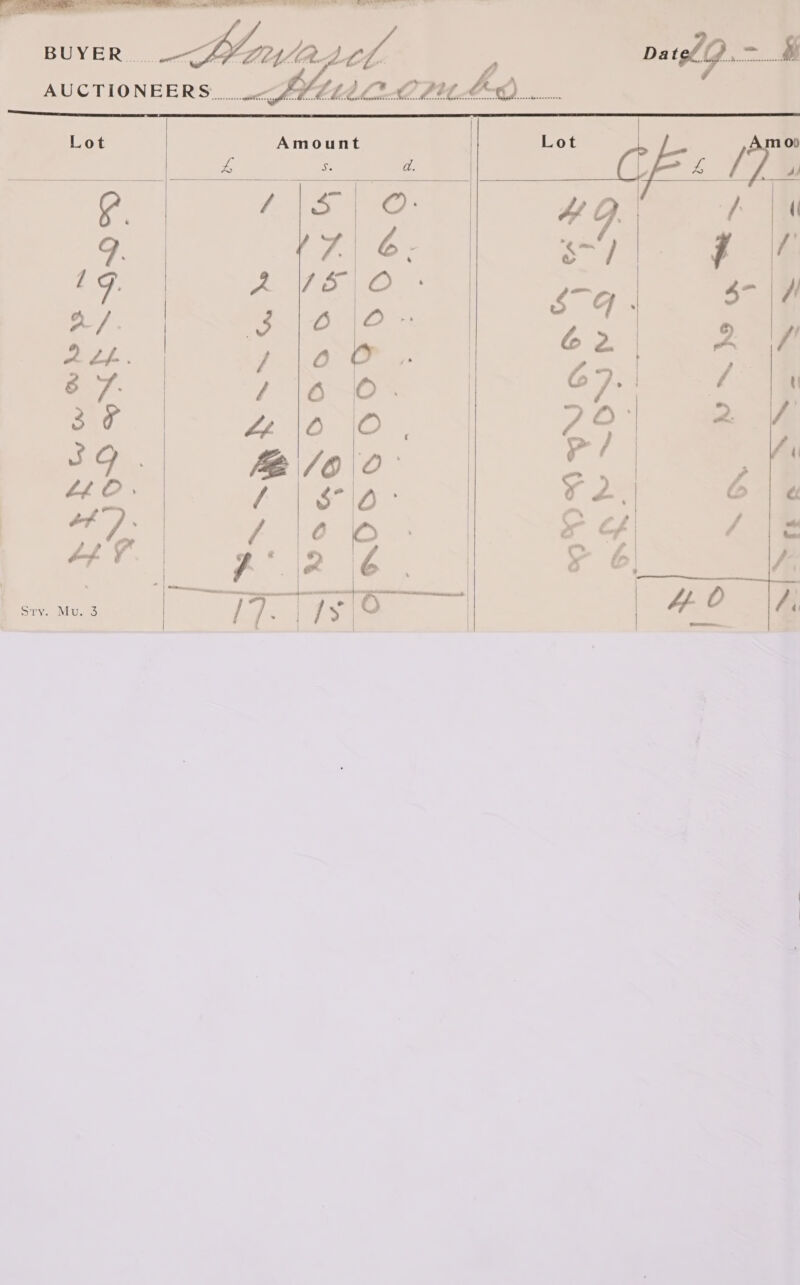 BUYER Howard Date 29. -
AUCTIONEERS Huscombs
Lot Amount Lot Amou
£ s. d. CF £ 17.
8. 1 5 0. 49. 1
9. 17. 6. 51 1
19. 2 15 0. 59. 5 1
21. 3 0 0 62 2 1
24. 1 0 0 67. 1
37. 1 0 0. 70 2 1
38 4 0 0. 81 1
39. 10 0. 82. 6
40. 1 5 0. 84 1
47. 1 0 0 86 1.
48 2 6.
Sty. Mu. 3 17. 15 0 40 1